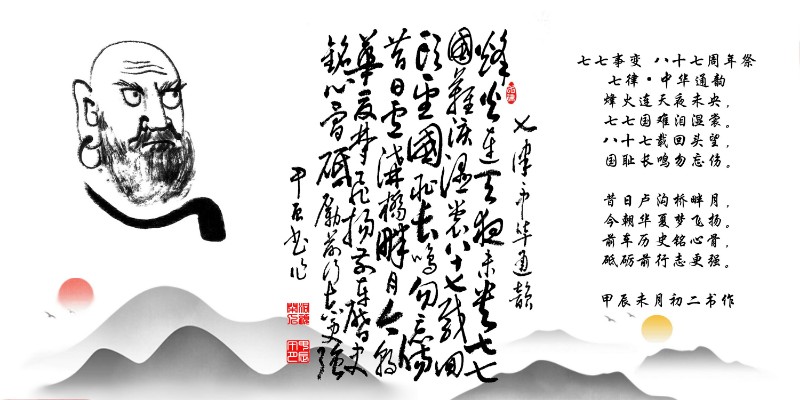 七律中华通韵
烽火連天夜未央七七
國難淚濕裳八十七載回
頭望國恥長鳴勿忘傷
昔日盧溝橋畔月今朝
華夏梦飞扬前车歷史
銘心骨砥礪前行志更强
甲辰书作
七七事变 八十七周年祭
七律·中华通韵
烽火连天夜未央，
七七国难泪湿裳。
八十七载回头望，
国耻长鸣勿忘伤。
昔日卢沟桥畔月，
今朝华夏梦飞扬。
前车历史铭心骨，
砥砺前行志更强。
甲辰未月初二书作